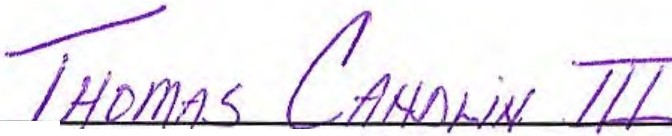 THOMAS CAHALIN III